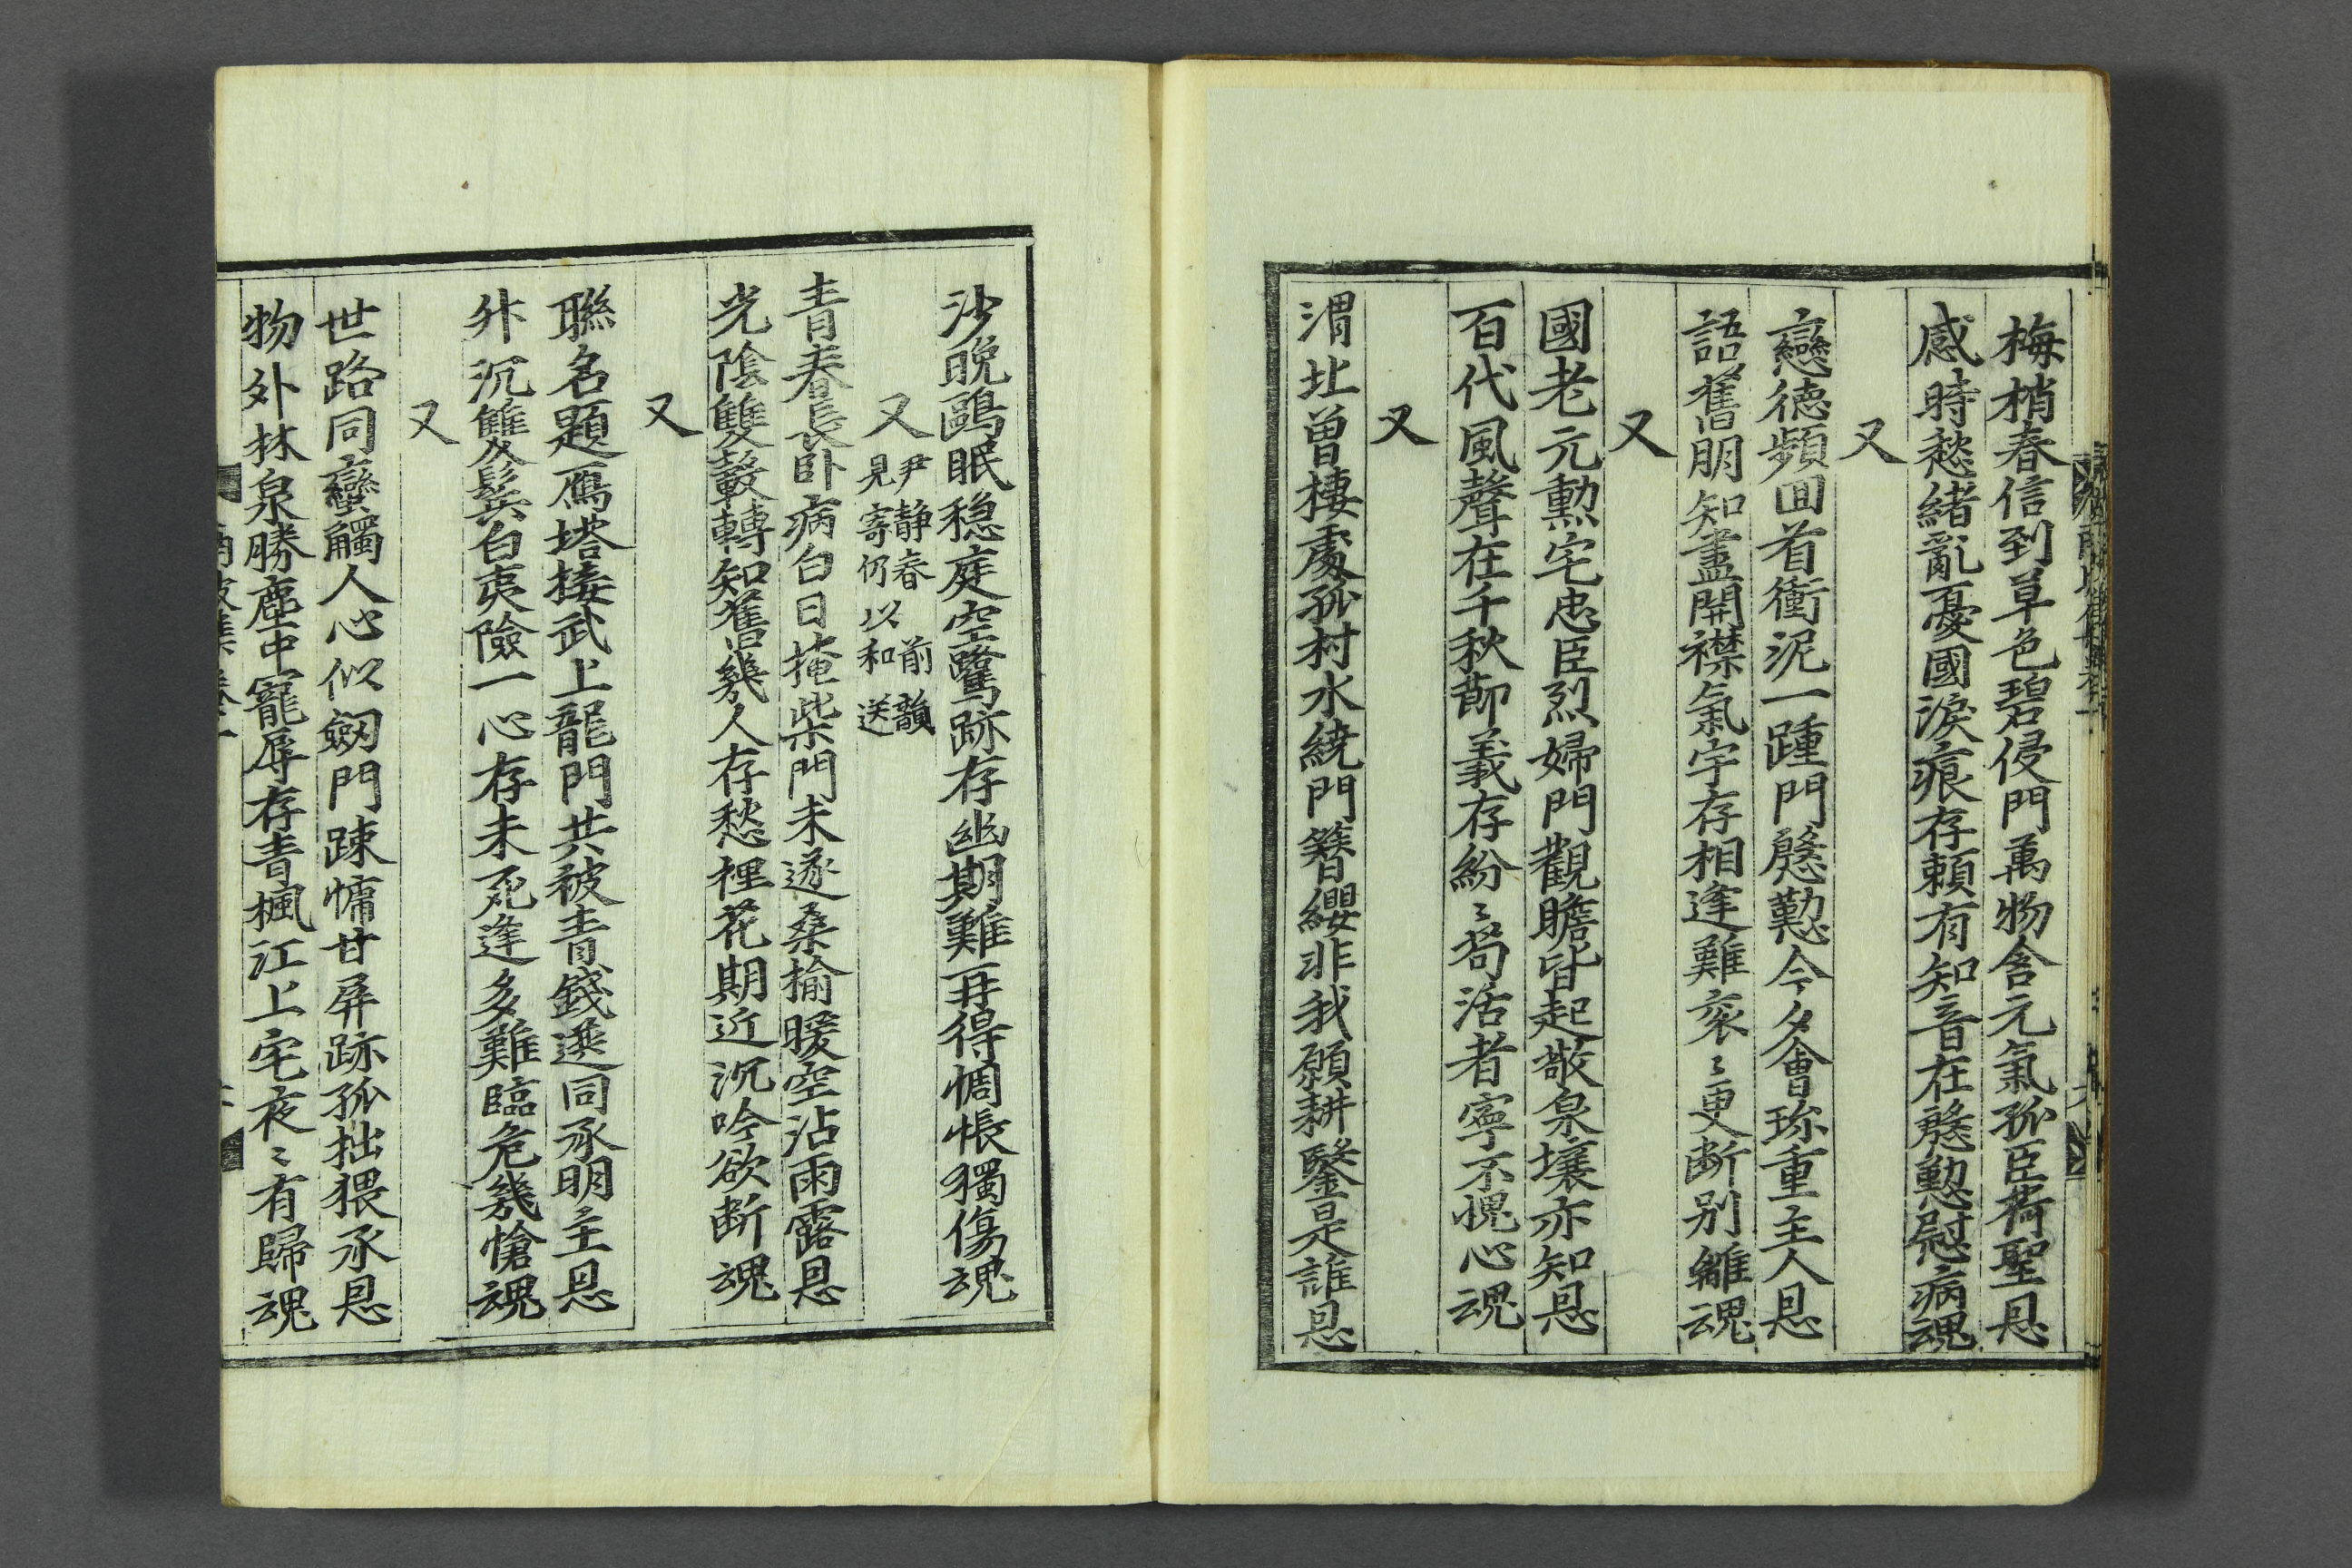 梅梢春信到草色碧侵門萬物含元氣孤臣荷聖恩
感時愁緒亂憂國淚痕存賴有知音在慇懃慰病魂
又
戀德頻回首衝泥一踵門慇懃今夕會珎重主人恩
語舊朋知盡開襟氣宇存相逢難袞〻更斷別離魂
又
國老元勳宅忠臣烈婦門觀瞻皆起敬泉壤亦知恩
百代風聲在千秋節義存紛〻苟活者寧不愧心魂
又
渭北曾棲處孤村水繞門簪纓非我願耕鑿是誰恩
沙晚鷗眠穩庭空鷺跡存幽期難再得惆悵獨傷魂
又 尹靜春前韻
見寄仍以和送
青春長臥病白日掩柴門未遂桑榆暖空沾雨露恩
光陰雙轂轉知舊幾人存愁裡花期近沉吟欲斷魂
又
聯名題鴈塔接武上龍門共被靑錢選同承明主恩
升沉雙鬂白夷險一心存未死逢多難臨危幾愴魂
又
世路同蠻觸人心似劒門踈慵甘屏跡孤拙猥承恩
物外林泉勝塵中寵辱存青楓江上宅夜〻有歸魂